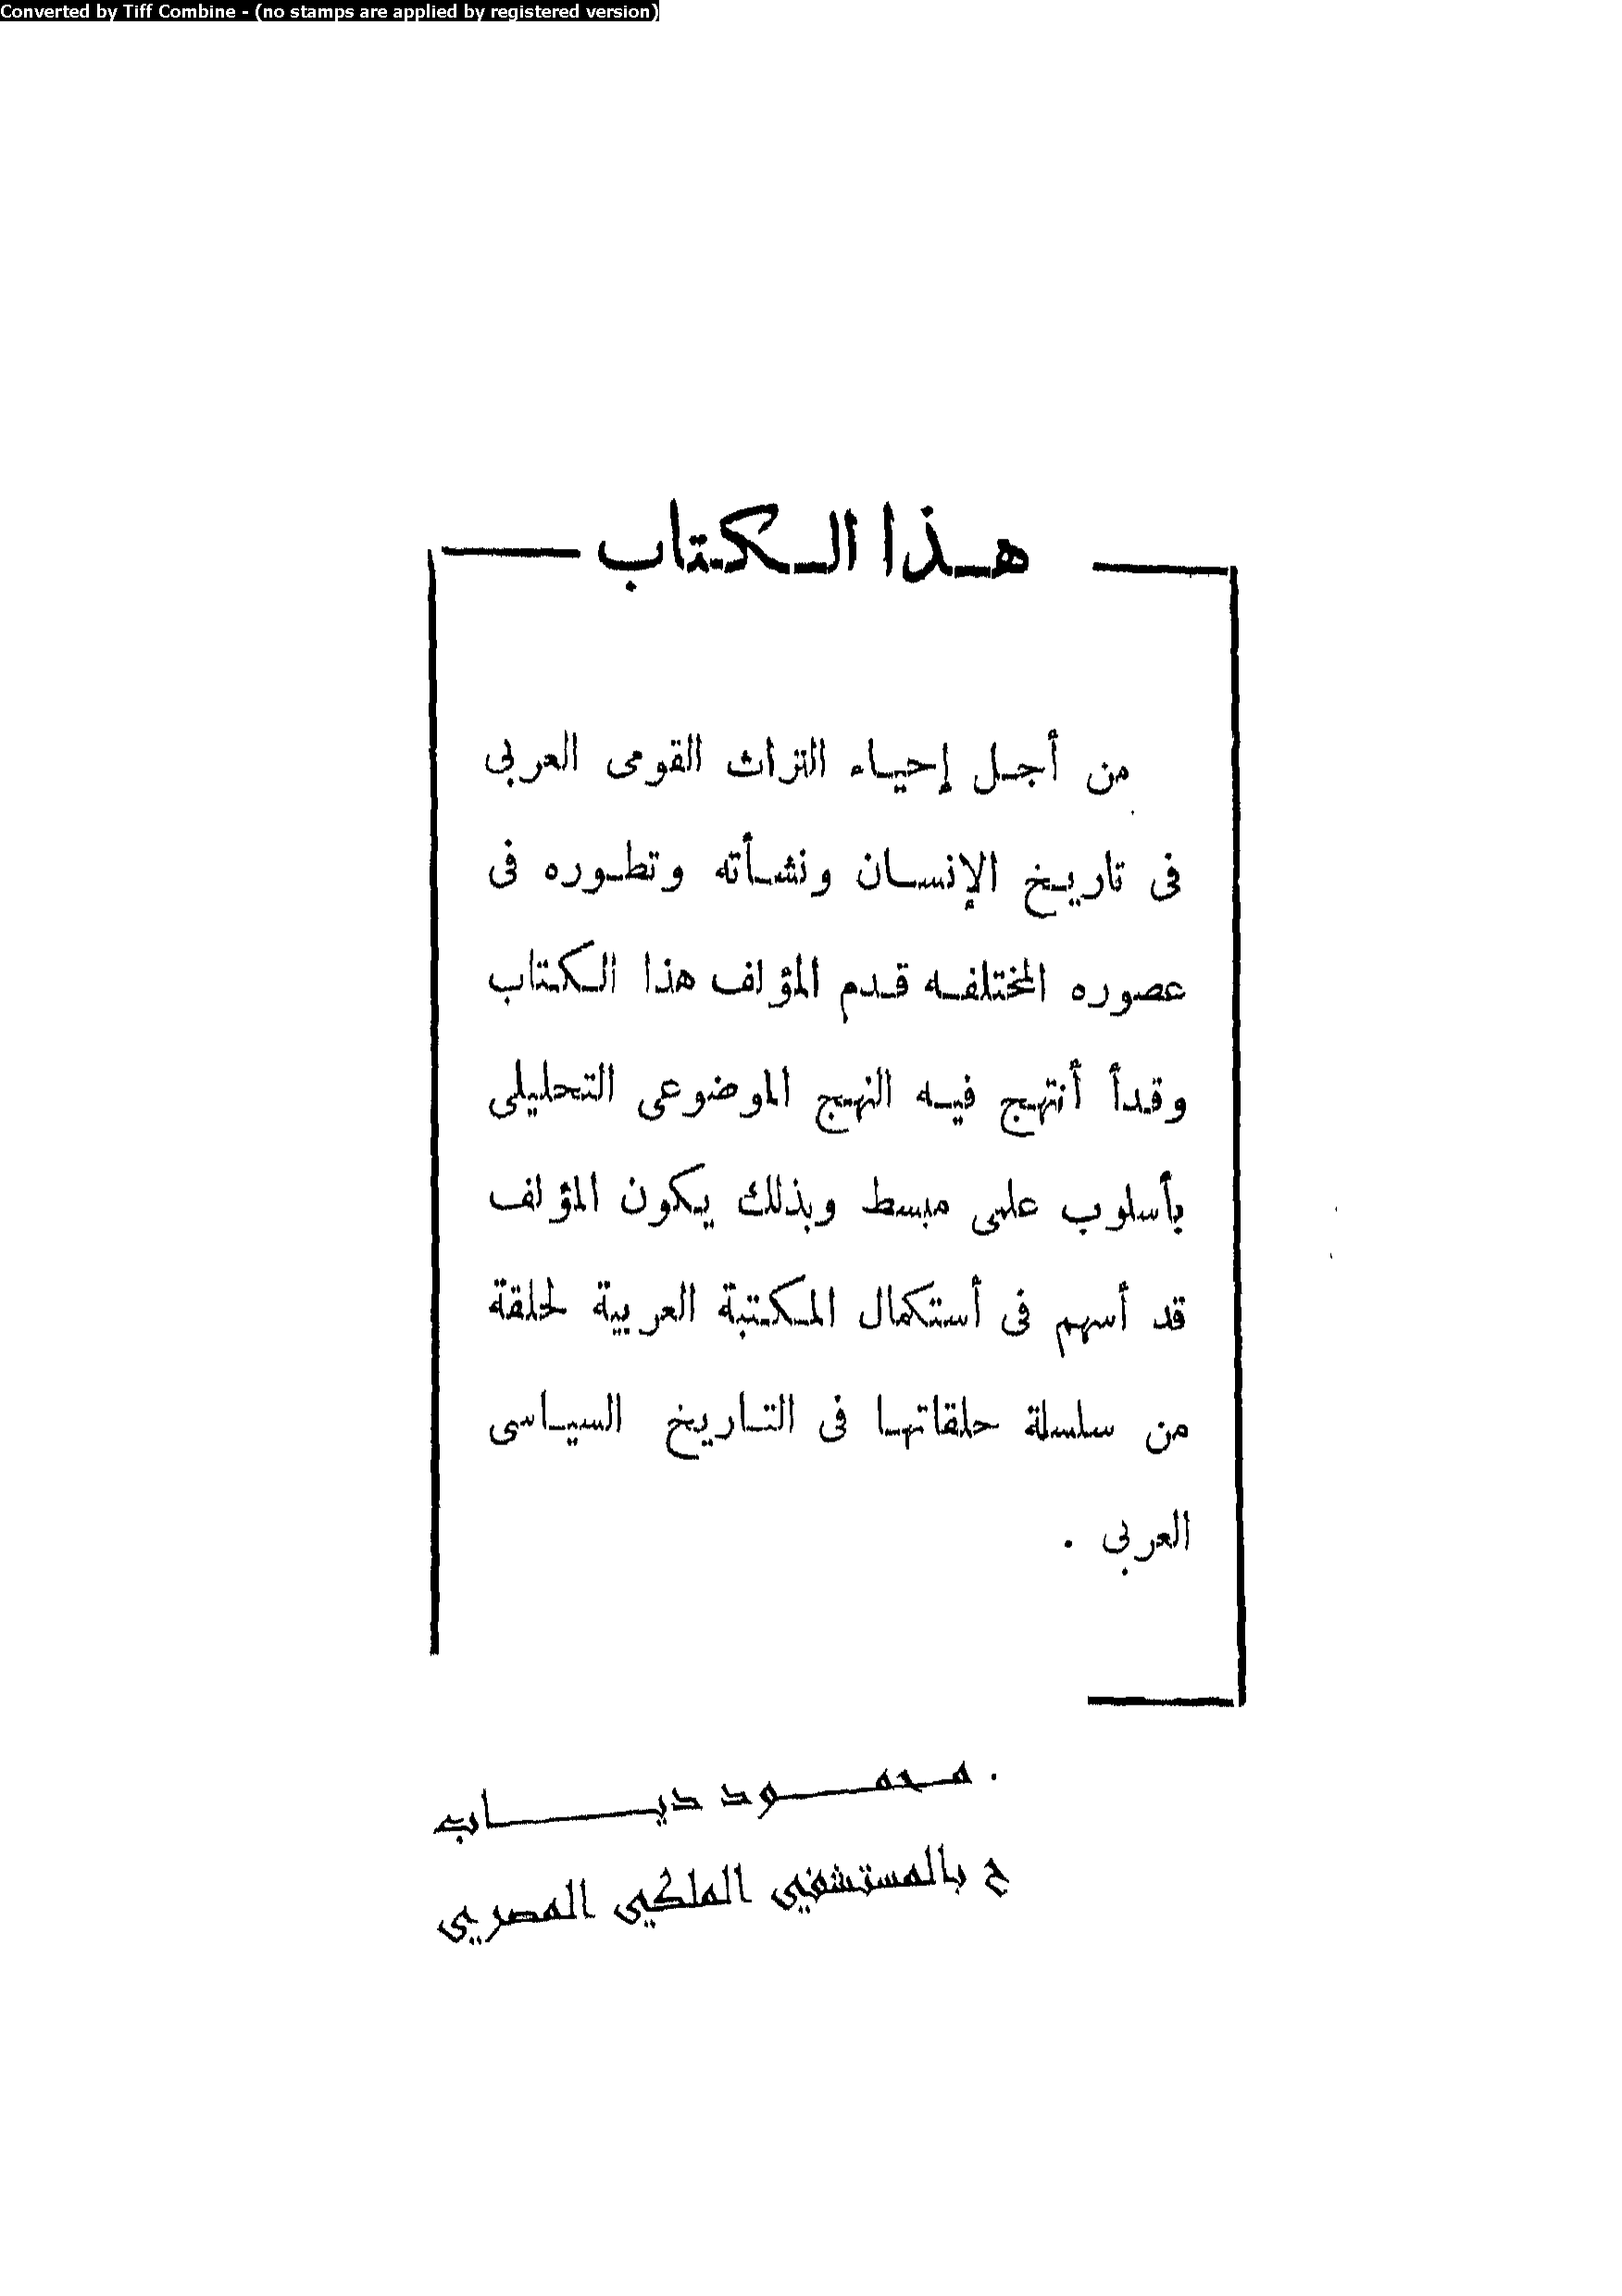 Converted by Tiff Combine - (no stamps are applied by registered version)
هـذا الـكـتاب
من أجـل إحيـاء التراث القومى العربى
فى تاريـخ الإنسـان ونشـأته وتطـوره فى
عصوره المختلفـه قـدم المؤلف هذا الـكـتاب
وقـدأ أنتهـج فيـه النهـج الموضوعى التحليلى
بأسلوب علمى مبسط وبذلك يكون المؤلف
قد أسهم فى أستكمال المـكـتبة العربية لحلقة
من سلسلة حلقاتهـا فى التـاريخ السيـاسى
العربى .
. محمـــود ديـــاب
ح بالمستشفي الملكي المصري